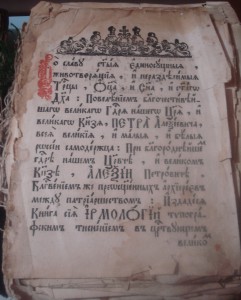 Во славу ст҃ыѧ единосꙋщныѧ,
животворѧщїѧ, и нераздѣлимыѧ
Трⷪ҇цы, Ѻ҆ц҃а, и Сн҃а, и ст҃агѡ
Дх҃а: Повелѣнїемъ благочестивѣй-
шагѡ великагѡ Гдⷭ҇рѧ нашегѡ Цр҃ѧ, и
великагѡ Кнѧ҃зѧ, ПЕТРА Алеѯїевича,
всеѧ великїѧ, и малыѧ, и бѣлыѧ
рѡссїи самодержца: При благороднѣйшемъ
гдⷭ҇рѣ нашемъ Цр҃вчѣ, и великомъ
Кнѧ҃зѣ, АЛЕѮІИ Петровичѣ
Блⷭ҇венїемъ же преѡсщ҃енныхъ архїереѡвъ
между патрїаршествомъ: Издадесѧ
Книга сїѧ ІРМОЛОГІЙ тѵпограф-
скимъ тисненїемъ в царствꙋющемъ
велико